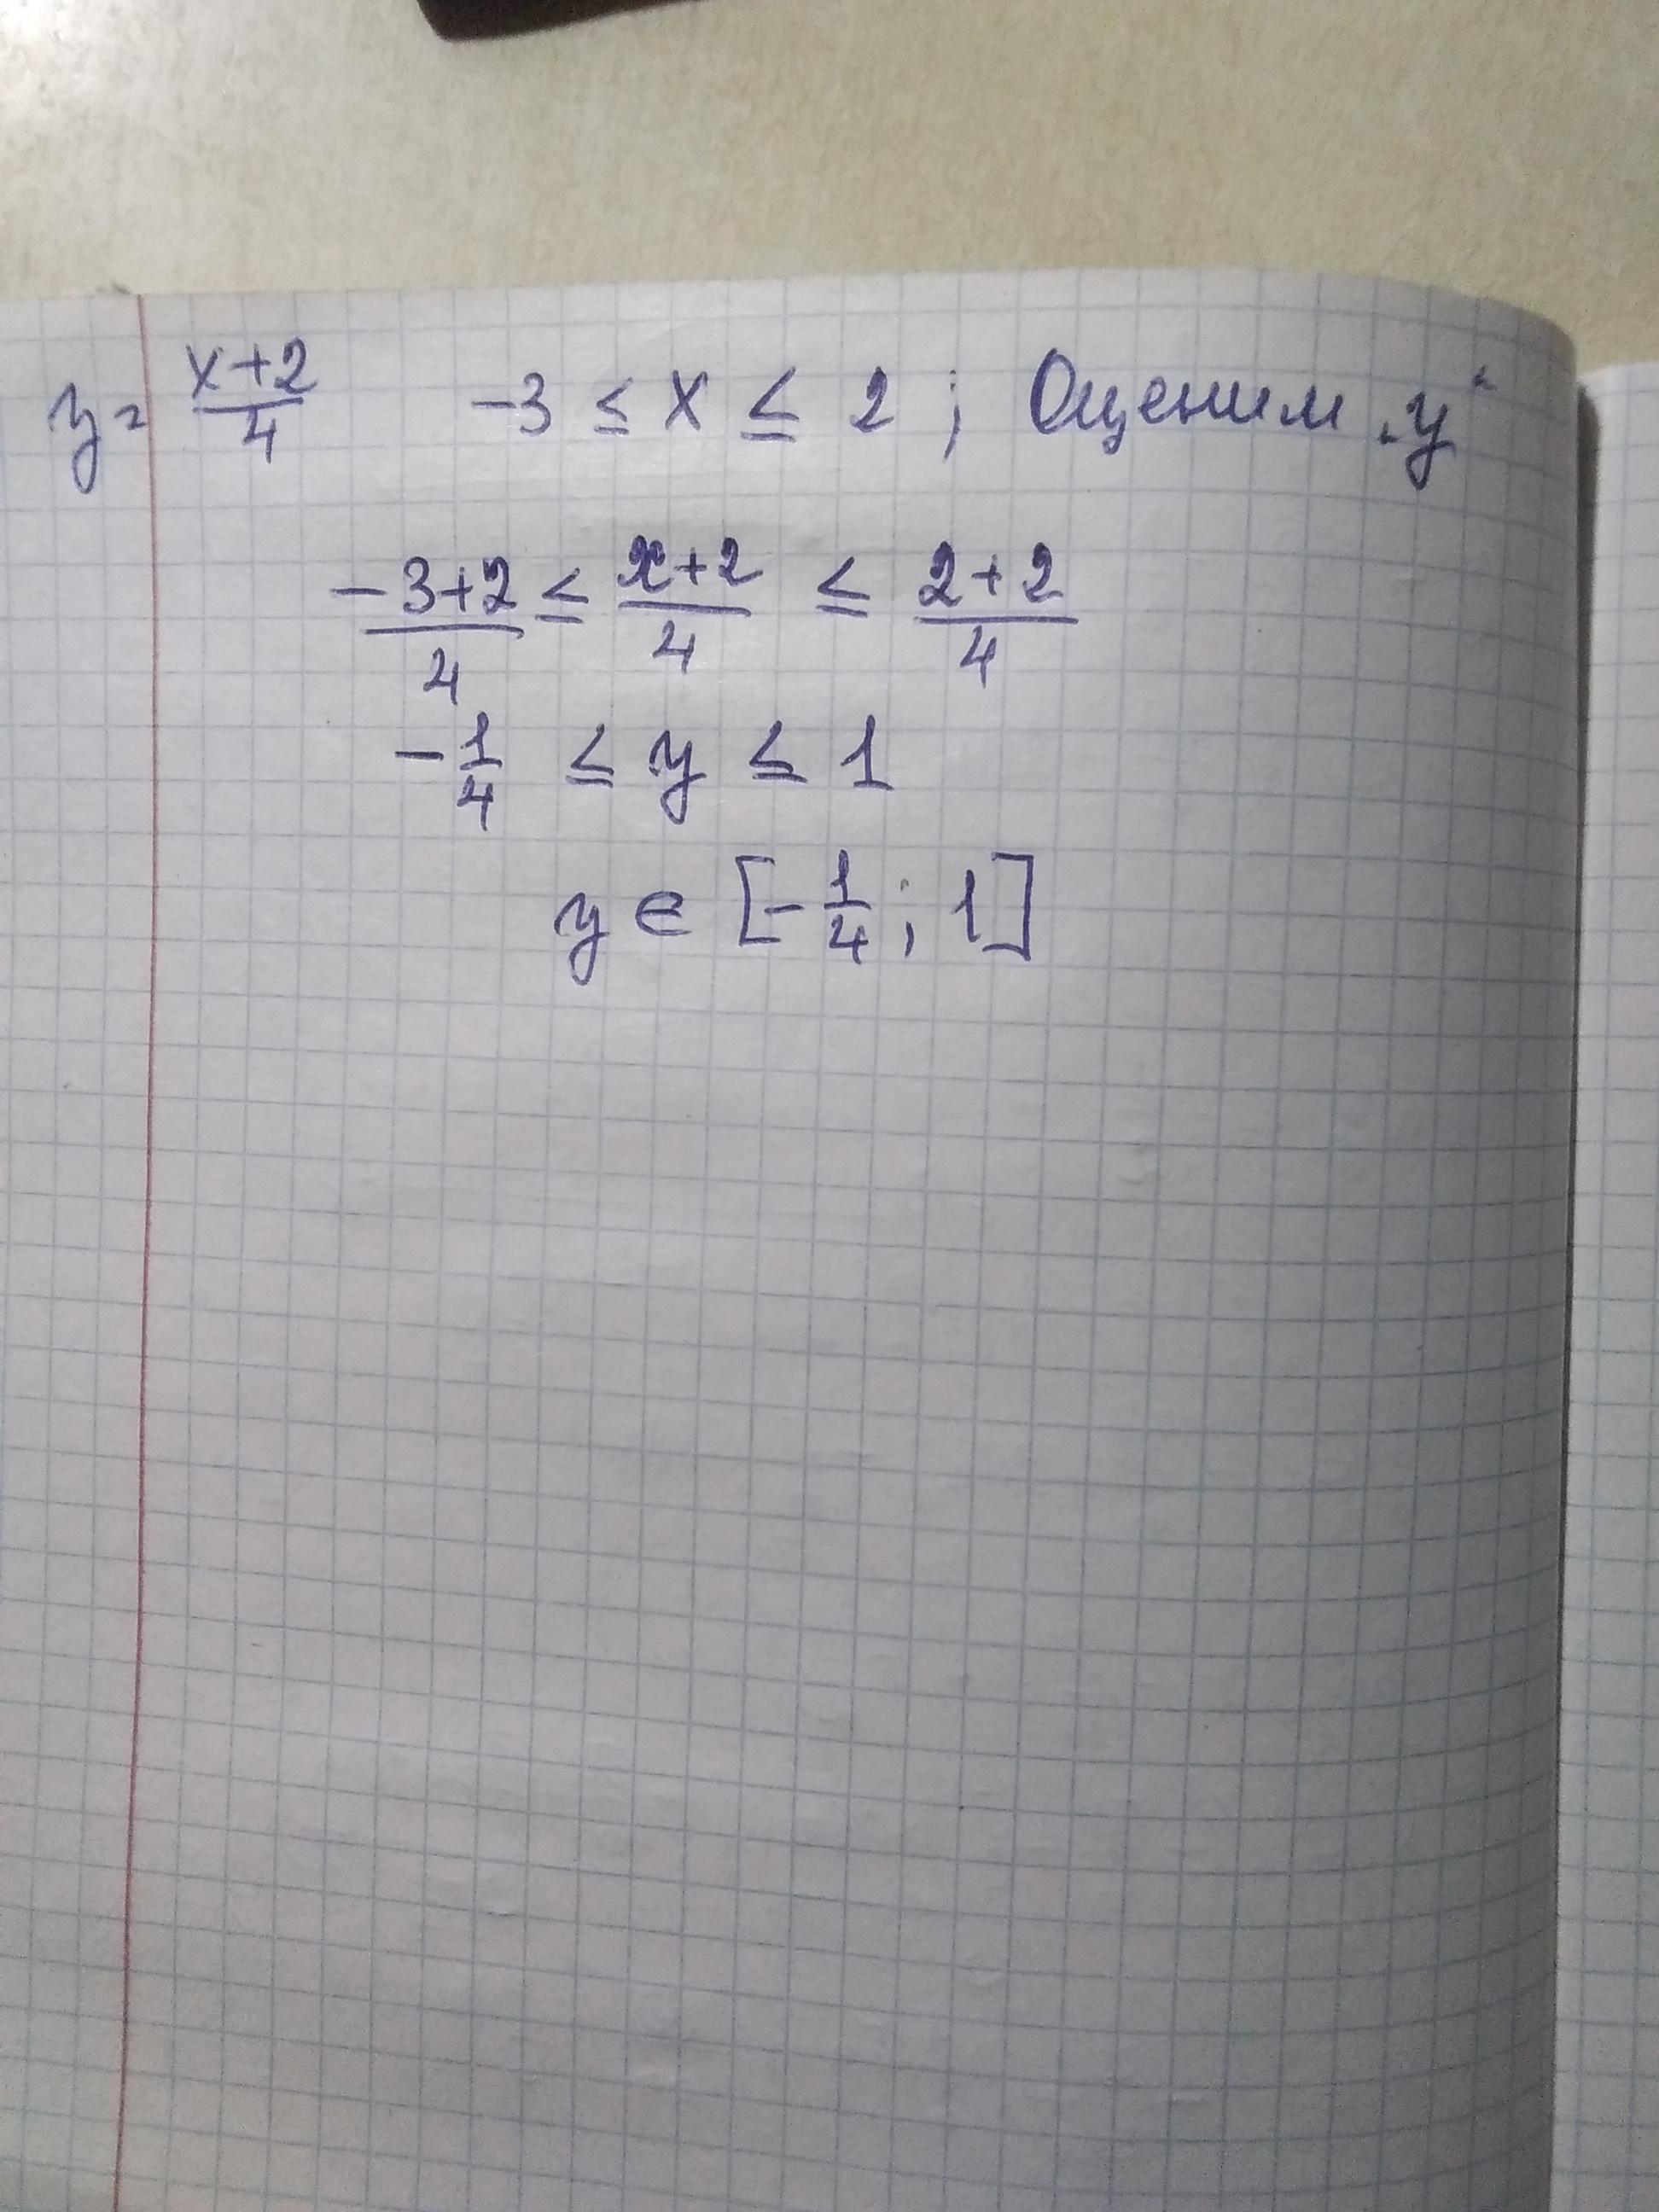 y = (x+2)/4   -3 ≤ x ≤ 2 ; Оценим „y“
(-3+2)/4 ≤ (x+2)/4 ≤ (2+2)/4
-1/4 ≤ y ≤ 1
y ∈ [-1/4 ; 1]